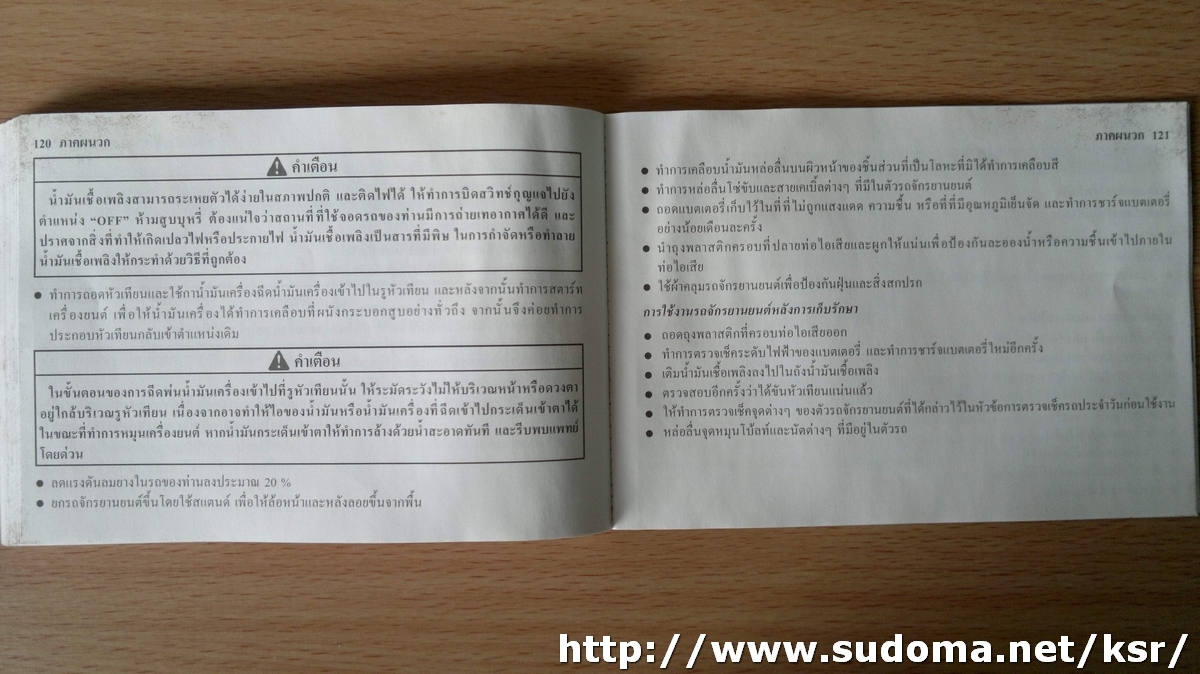 120 ภาคผนวก
คำเตือน
น้ำมันเชื้อเพลิงสามารถระเหยตัวได้ง่ายในสภาพปกติ และติดไฟได้ ให้ทำการบิดสวิทช์กุญแจไปยัง
ตำแหน่ง “OFF” ห้ามสูบบุหรี่ ต้องแน่ใจว่าสถานที่ที่ใช้จอดรถของท่านมีการถ่ายเทอากาศได้ดี และ
ปราศจากสิ่งที่ทำให้เกิดเปลวไฟหรือประกายไฟ น้ำมันเชื้อเพลิงเป็นสารที่มีพิษ ในการกำจัดหรือทำลาย
น้ำมันเชื้อเพลิงให้กระทำด้วยวิธีที่ถูกต้อง
● ทำการถอดหัวเทียนและใช้กาน้ำมันเครื่องฉีดน้ำมันเครื่องเข้าไปในรูหัวเทียน และหลังจากนั้นทำการสตาร์ท
เครื่องยนต์ เพื่อให้น้ำมันเครื่องได้ทำการเคลือบที่ผนังกระบอกสูบอย่างทั่วถึง จากนั้นจึงค่อยทำการ
ประกอบหัวเทียนกลับเข้าตำแหน่งเดิม
คำเตือน
ในขั้นตอนของการฉีดพ่นน้ำมันเครื่องเข้าไปที่รูหัวเทียนนั้น ให้ระมัดระวังไม่ให้บริเวณหน้าหรือดวงตา
อยู่ใกล้บริเวณรูหัวเทียน เนื่องจากอาจทำให้ไอของน้ำมันหรือน้ำมันเครื่องที่ฉีดเข้าไปกระเด็นเข้าตาได้
ในขณะที่ทำการหมุนเครื่องยนต์ หากน้ำมันกระเด็นเข้าตาให้ทำการล้างด้วยน้ำสะอาดทันที และรีบพบแพทย์
โดยด่วน
● ลดแรงดันลมยางในรถของท่านลงประมาณ 20 %
● ยกรถจักรยานยนต์ขึ้นโดยใช้สแตนด์ เพื่อให้ล้อหน้าและหลังลอยขึ้นจากพื้น
ภาคผนวก 121
● ทำการเคลือบน้ำมันหล่อลื่นบนผิวหน้าของชิ้นส่วนที่เป็นโลหะที่มิได้ทำการเคลือบสี
● ทำการหล่อลื่นโซ่ขับและสายเคเบิ้ลต่างๆ ที่มีในตัวรถจักรยานยนต์
● ถอดแบตเตอรี่เก็บไว้ในที่ที่ไม่ถูกแสงแดด ความชื้น หรือที่ที่มีอุณหภูมิเย็นจัด และทำการชาร์จแบตเตอรี่
อย่างน้อยเดือนละครั้ง
● นำถุงพลาสติกครอบที่ปลายท่อไอเสียและผูกให้แน่นเพื่อป้องกันละอองน้ำหรือความชื้นเข้าไปภายใน
ท่อไอเสีย
● ใช้ผ้าคลุมรถจักรยานยนต์เพื่อป้องกันฝุ่นและสิ่งสกปรก
การใช้งานรถจักรยานยนต์หลังการเก็บรักษา
● ถอดถุงพลาสติกที่ครอบท่อไอเสียออก
● ทำการตรวจเช็คระดับไฟฟ้าของแบตเตอรี่ และทำการชาร์จแบตเตอรี่ใหม่อีกครั้ง
● เติมน้ำมันเชื้อเพลิงลงไปในถังน้ำมันเชื้อเพลิง
● ตรวจสอบอีกครั้งว่าได้ขันหัวเทียนแน่นแล้ว
● ให้ทำการตรวจเช็คจุดต่างๆ ของตัวรถจักรยานยนต์ที่ได้กล่าวไว้ในหัวข้อการตรวจเช็ครถประจำวันก่อนใช้งาน
● หล่อลื่นจุดหมุนโบ้ลท์และนัตต่างๆ ที่มีอยู่ในตัวรถ
http://www.sudoma.net/ksr/